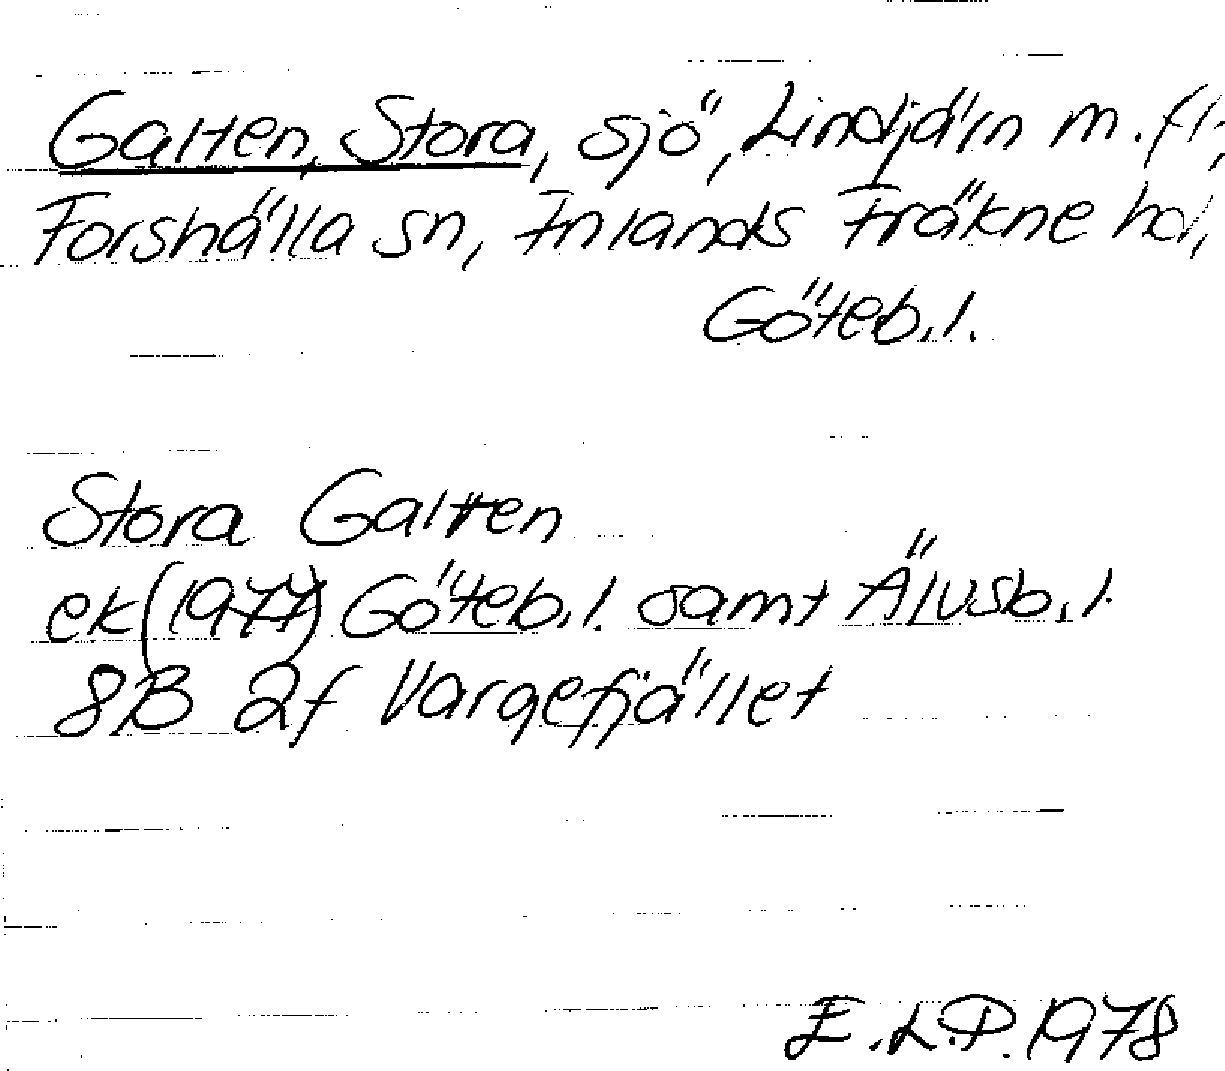 Galten, Stora, sjö, Lindjärn m. fl;
Forshälla sn, Inlands Fräkne hd,
Göteb. l.
Stora Galten
ek (1977) Göteb. l. samt Älvsb. l.
8B 2f Vargefjället
E.L.P. 1978